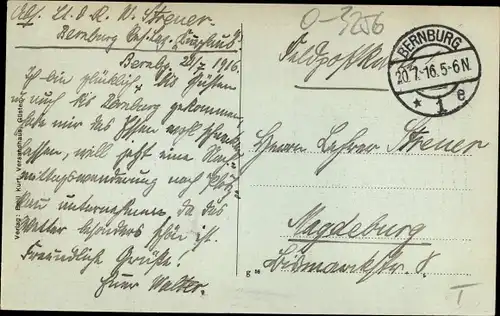 Abs. U.d.R. W. Streuer.
Bernburg Res. Laz. "Kurhaus"
Bernbg. 20/7 1916.
Ich bin glücklich bis Güsten
u. nach bis Bernburg gekommen,
habe mir das Essen
lassen, will jetzt eine Nach-
mittagswanderung nach
unternehmen, da das
Wetter besonders schön ist.
Freundlich Grüße.
Euer Walter.
Verlag: Kurt Versandhaus, Güsten
O-3256
Feldpostkarte
BERNBURG
20.7.16.5-6N.
* 1 e
Herrn Lehrer Streuer
Magdeburg
Bismarckstr. 8.